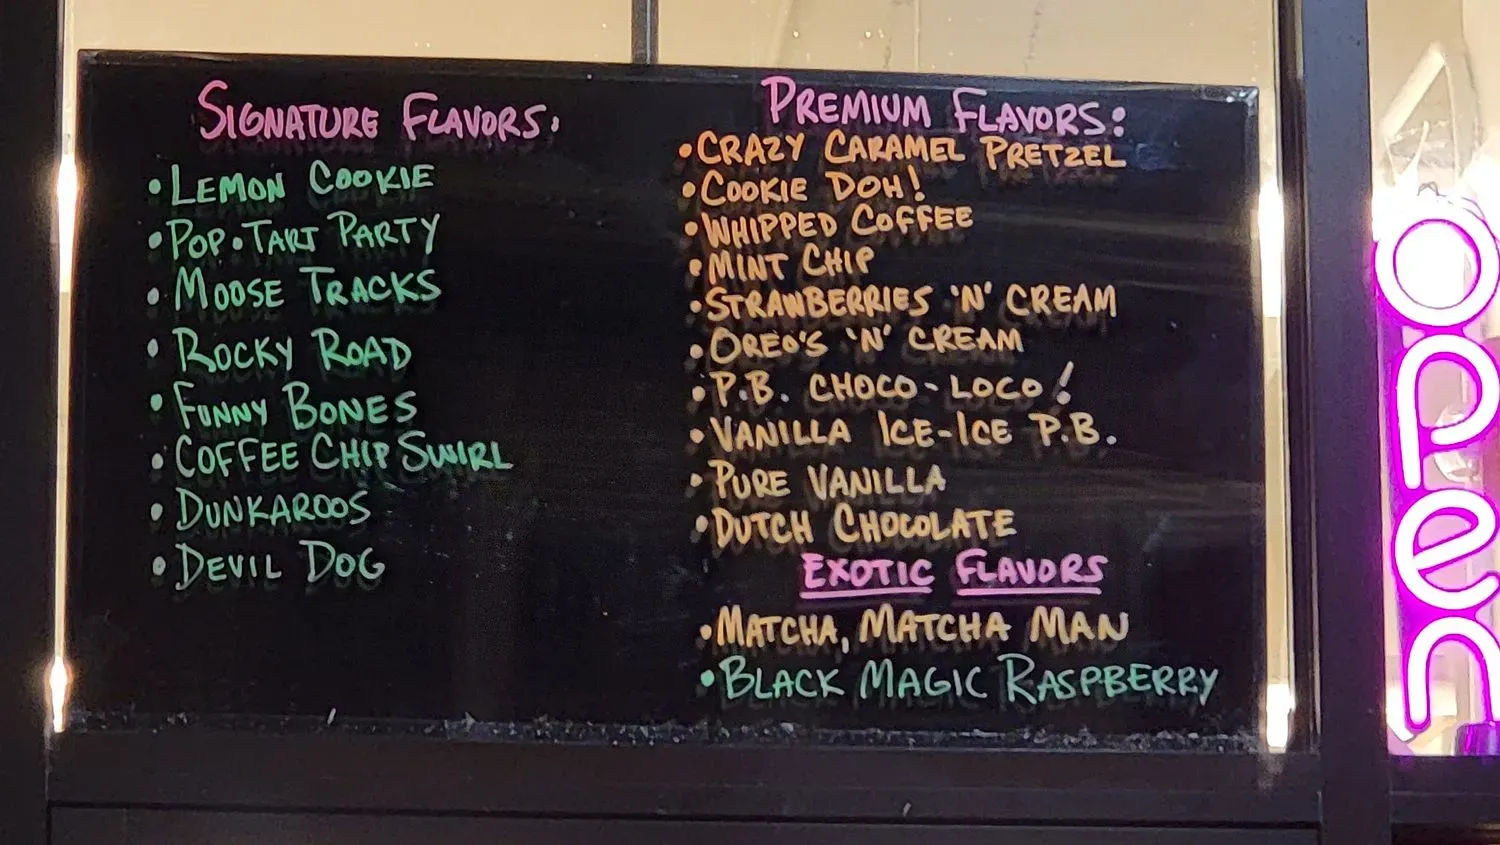 SIGNATURE FLAVORS:
• LEMON COOKIE
• POP•TART PARTY
• MOOSE TRACKS
• ROCKY ROAD
• FUNNY BONES
• COFFEE CHIP SWIRL
• DUNKAROOS
• DEVIL DOG
PREMIUM FLAVORS:
• CRAZY CARAMEL PRETZEL
• COOKIE DOH!
• WHIPPED COFFEE
• MINT CHIP
• STRAWBERRIES 'N' CREAM
• OREO'S 'N' CREAM
• P.B. CHOCO-LOCO!
• VANILLA ICE-ICE P.B.
• PURE VANILLA
• DUTCH CHOCOLATE
EXOTIC FLAVORS
• MATCHA, MATCHA MAN
• BLACK MAGIC RASPBERRY
open